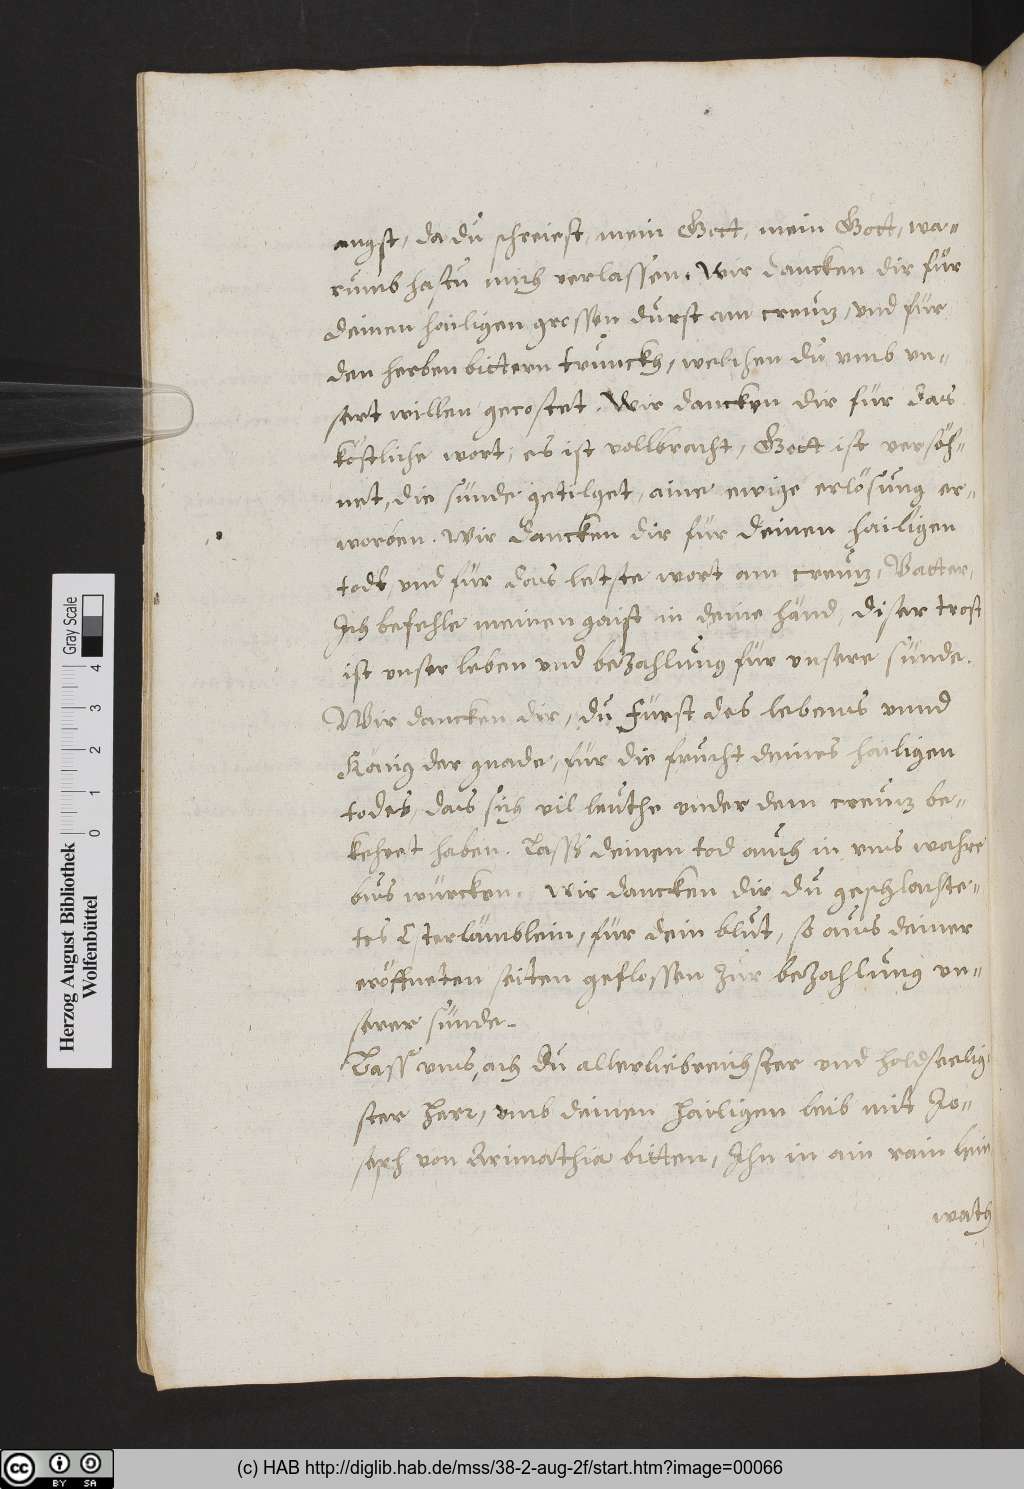 angst, da du schreiest, mein Gott, mein Gott, wa-
rumb hastu mich verlassen. Wir dancken dir für
deinen hailigen grossen durst am creutz, vnd für
den herben bittern trunckh, welchen du vmb vn-
sert willen gecostet. Wir dancken dir für das
köstliche wort, es ist vollbracht, Gott ist versöh-
net, die sünde getilget, aine ewige erlösung er-
worben. Wir dancken dir für deinen hailigen
todt, vnd für das letste wort am creutz, Vatter,
Ich befehle meinen gaist in deine händ, diser trost
ist vnser leben vnd bezahlung für vnsere sünde.
Wir dancken dir, du Fürst des lebens vnnd
König der gnade, für die frucht deines hailigen
todes, das sich vil leuthe vnder dem creutz be-
kehret haben. Lass deinen tod auch in vns wahre
bus würcken. Wir dancken dir du geschlachte-
tes Osterlämblein, für dein blut, so aus deiner
eröffneten seiten geflossen zur bezahlung vn-
serer sünde.
Lass vns, ach du allerliebreichster vnd holdseelig-
ster Herr, vmb deinen hailigen leib mit Jo-
seph von Arimathia bitten, Ihn in ain rain lein
wath
Herzog August Bibliothek
Wolfenbüttel
0 1 2 3 4
Gray Scale
(c) HAB http://diglib.hab.de/mss/38-2-aug-2f/start.htm?image=00066
cc BY SA